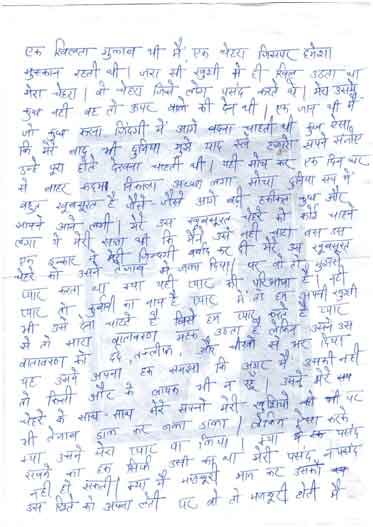 एक खिलता गुलाब थी मैं, एक चेहरा जिसपर हमेशा
मुस्कान रहती थी। जरा सी खुशी में ही खिल उठता था
मेरा चेहरा। वो चेहरा जिसे लोग पसंद करते थे। मेरा उसमें
कुछ नहीं वह तो ऊपर वाले की देन थी। एक जान थी मैं
जो कुछ करना जिंदगी में आगे बढ़ना चाहती थी कुछ ऐसा
कि मेरे बाद भी दुनिया मुझे याद रखे हजारों सपने संजोए
उन्हें पूरा होते देखना चाहती थी। यही सोच कर एक दिन घर
से बाहर कदम निकाला अच्छा लगा सोचा दुनिया सच में
बहुत खूबसूरत है मैंने जैसे आगे बढ़ी हकीकत कुछ और
सामने आने लगी। मेरे उस खूबसूरत चेहरे को कोई चाहने
लगा थे मेरी सजा थी कि मैंने उसे नहीं चाहा बस इस
एक इन्कार ने मेरी जिन्दगी बर्बाद कर दी मेरे उस खूबसूरत
चेहरे को उसने तेजाब से जला दिया। पर वो तो मुझसे
प्यार करता था क्या यही प्यार की परिभाषा है। नहीं
प्यार तो खुशी का नाम है प्यार में तो हम अपनी खुशी
भी उसे देना चाहते हैं जिसे हम प्यार करते हैं प्यार
में तो सारा वातावरण महक उठता है लेकिन उसने उस
वातावरण को दर्द, तकलीफ, और चीखों से भर दिया
यह उसने अपना हक समझा कि अगर मैं उसकी नहीं
तो किसी और के लायक भी न रहूं। उसने मेरे
चेहरे के साथ-साथ मेरे सपनो मेरी खुशियों पर
भी तेजाब डाल कर जला डाला। लेकिन ऐसा करके
क्या उसने मेरा प्यार पा लिया। क्या पसंद
रखने का हक सिर्फ उसी का था मेरी पसंद, नापसंद
नहीं हो सकती। क्या मैं मजबूरी मान कर उसको
उस रिश्ते को अपना लेती पर वो तो मजबूरी होती मैं